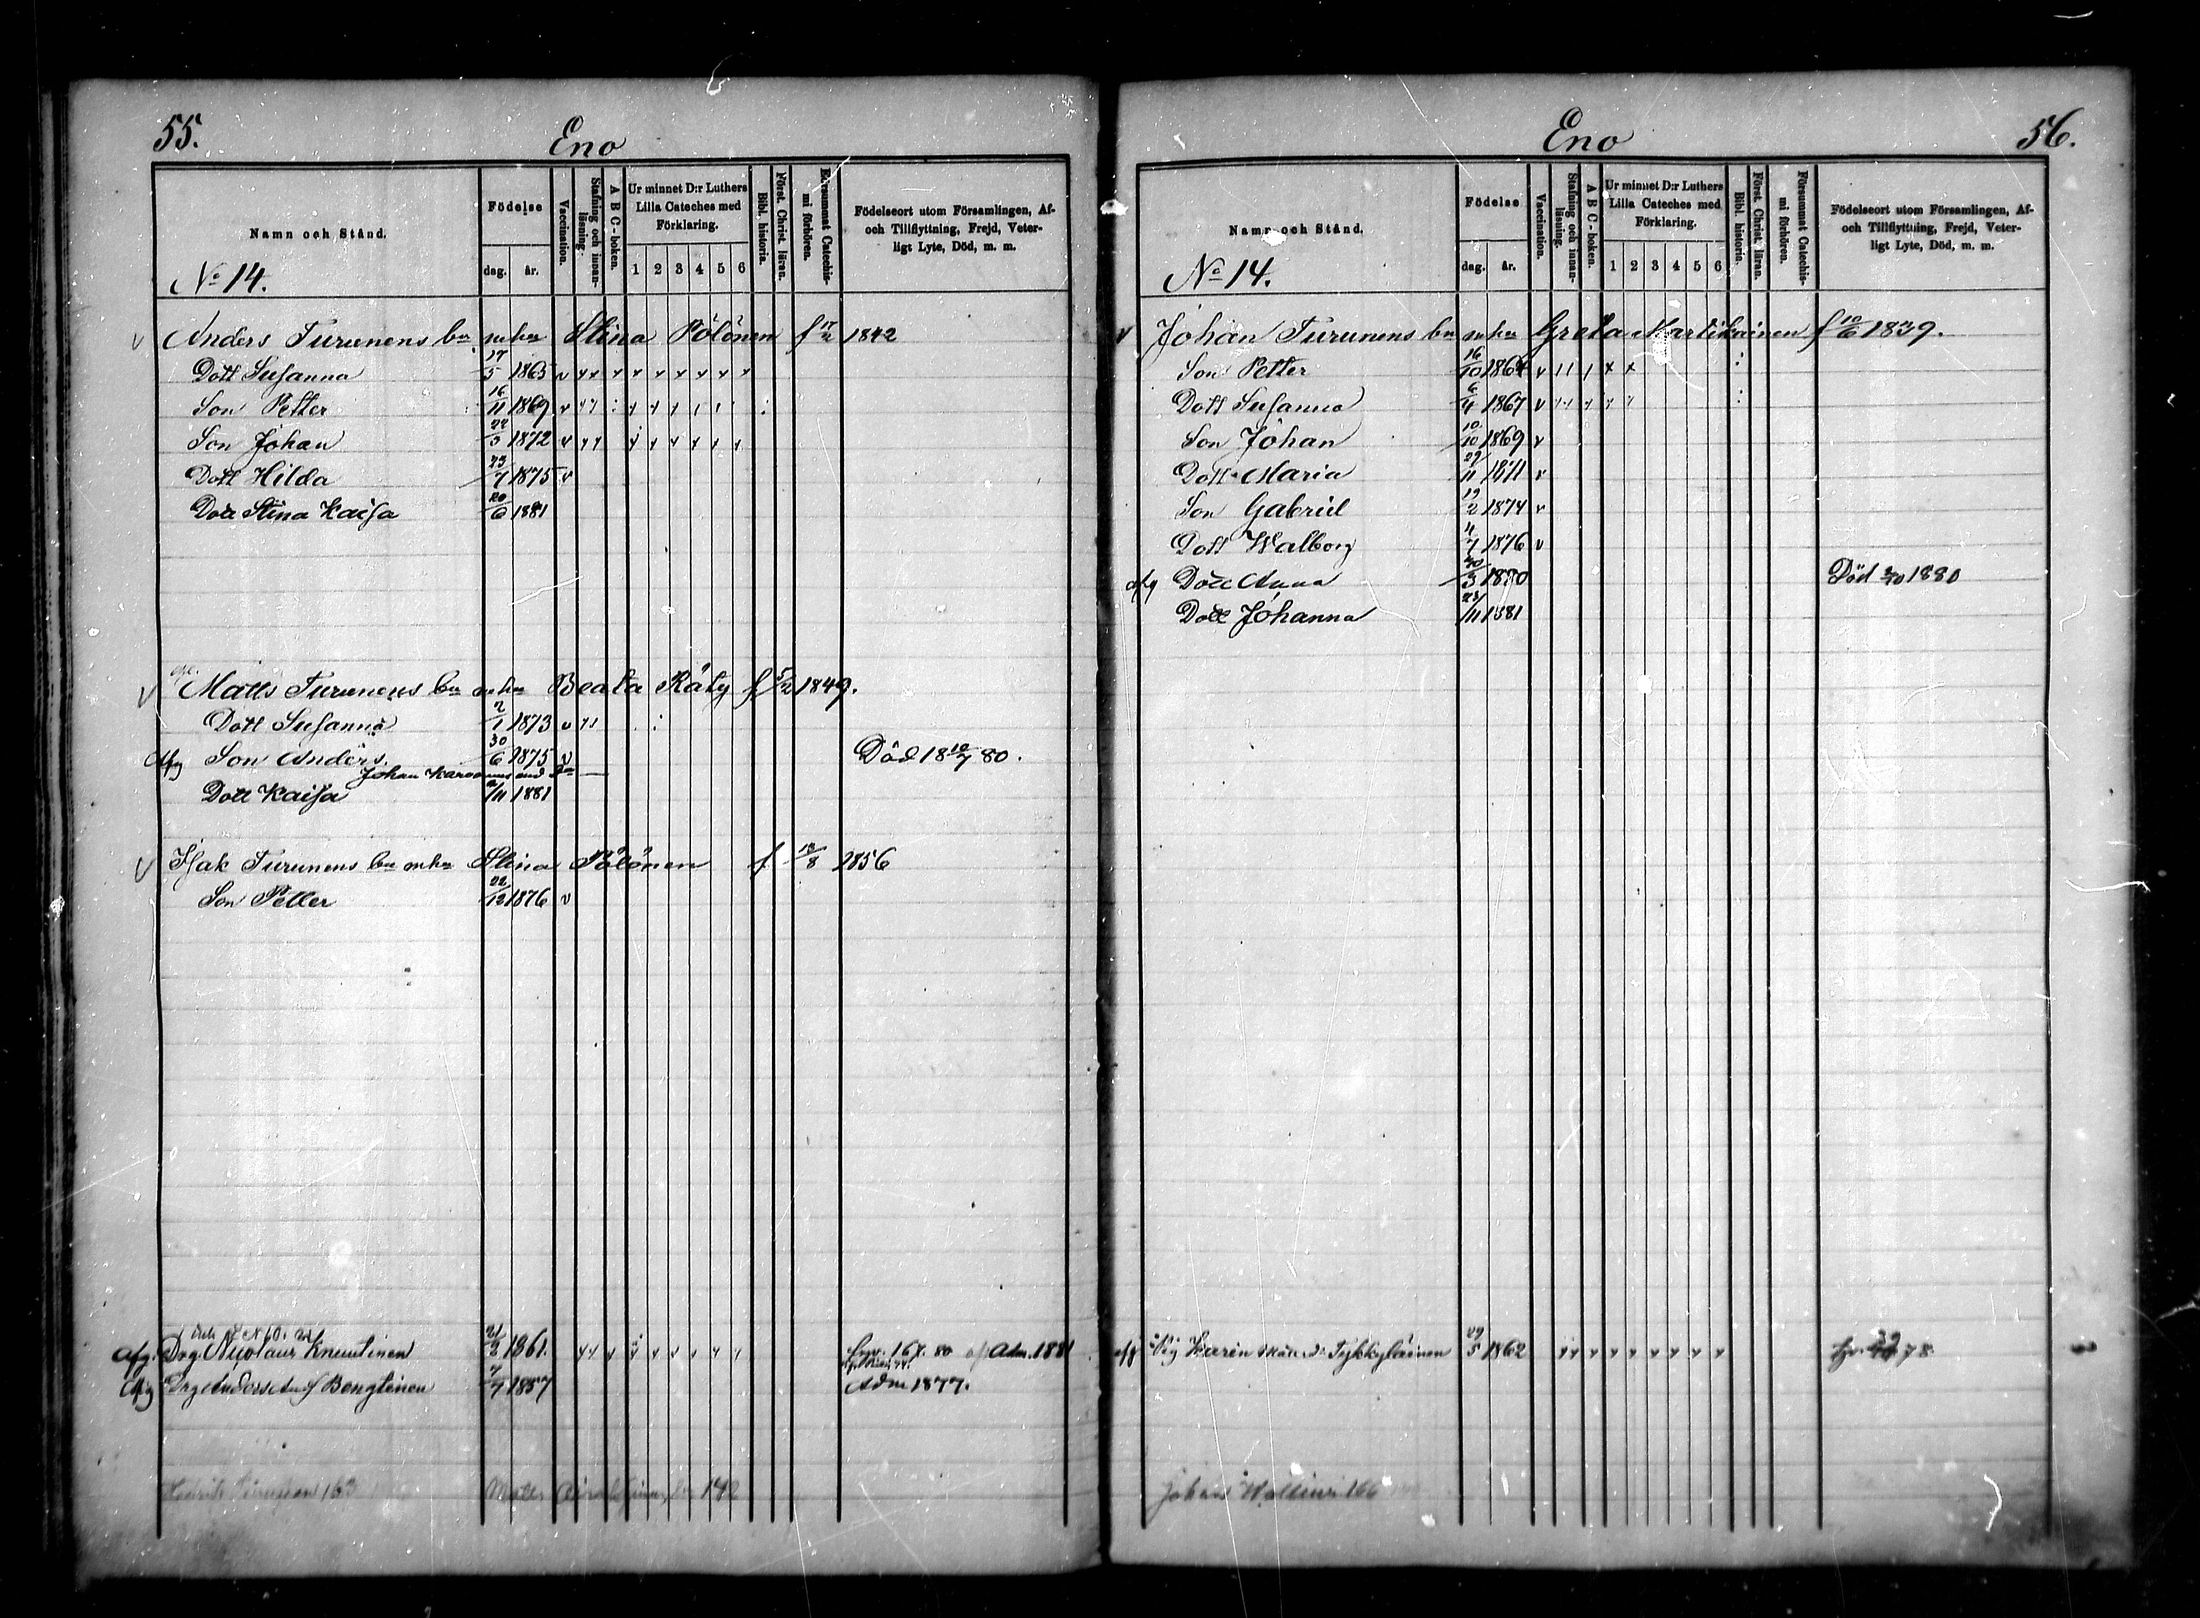 55.
Eno
Namn och Stånd.
Födelse
dag.
år.
Vaccination.
Stafning och innan-
läsning.
A B C-boken.
Ur minnet D:r Luthers
Lilla Cateches med
Förklaring.
1 2 3 4 5 6
Bibl. historia.
Först. Christ. läran.
Försummat Catechis-
mi förhören.
Födelseort utom Församlingen, Af-
och Tillflyttning, Frejd, Veter-
ligt Lyte, Död, m. m.
No 14.
v Anders Turunens bn m hu Stina Pölönen f 17/2 1842
Dott Susanna 17/5 1865 v
Son Petter 16/11 1869 v
Son Johan 22/3 1872 v
Dott Hilda 23/7 1875 v
Dott Stina Kaisa 20/6 1881
v Matts Turunens bn m hu Beata Räty f 5/2 1849.
Dott Susanna 2/1 1873 v
Afg Son Anders 30/6 1875 v Död 18 10/7 80.
Johan
Dott Kaisa /11 1881
v Isak Turunens bn m hu Stina Pölönen f 18/8 1856
Son Petter 22/12 1876 v
afg. Drg Nicolaus Knuutinen 21/2 1861. 80 Adm. 1881
Afg Drg Anders And Bengtinen 4/7 1857 Adm 1877.
163
Matts 142
Eno
56.
Namn och Stånd.
Födelse
dag.
år.
Vaccination.
Stafning och innan-
läsning.
A B C-boken.
Ur minnet D:r Luthers
Lilla Cateches med
Förklaring.
1 2 3 4 5 6
Bibl. historia.
Först. Christ. läran.
Försummat Catechis-
mi förhören.
Födelseort utom Församlingen, Af-
och Tillflyttning, Frejd, Veter-
ligt Lyte, Död, m. m.
No 14.
v Johan Turunens bn m hu Greta Martikainen f 10/6 1839.
Son Petter 16/10 1864 v
Dott Susanna 6/4 1867 v
Son Johan 10/10 1869 v
Dott Maria 29/11 1871 v
Son Gabriel 19/2 1874 v
Dott Walborg 4/7 1876 v
afg Dott Anna Död 1880
Dott Johanna 23/11 1881
afg Pig Karin Tykkyläinen 29/5 1862 78
Johan 166